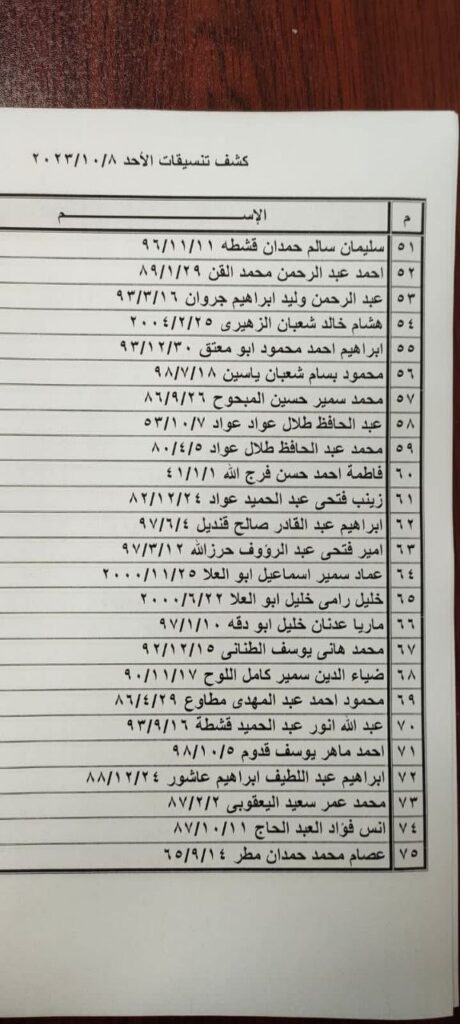 كشف تنسيقات الأحد ٢٠٢٣/١٠/٨
م الإســـــــــم
٥١ سليمان سالم حمدان قشطه ٩٦/١١/١١
٥٢ احمد عبد الرحمن محمد القن ٨٩/١/٢٩
٥٣ عبد الرحمن وليد ابراهيم جروان ٩٣/٣/١٦
٥٤ هشام خالد شعبان الزهيرى ٢٠٠٤/٢/٢٥
٥٥ ابراهيم احمد محمود ابو معتق ٩٣/١٢/٣٠
٥٦ محمود بسام شعبان ياسين ٩٨/٧/١٨
٥٧ محمد سمير حسين المبحوح ٨٦/٩/٢٦
٥٨ عبد الحافظ طلال عواد عواد ٥٣/١٠/٧
٥٩ محمد عبد الحافظ طلال عواد ٨٠/٤/٥
٦٠ فاطمة احمد حسن فرج الله ٤١/١/١
٦١ زينب فتحى عبد الحميد عواد ٨٢/١٢/٢٤
٦٢ ابراهيم عبد القادر صالح قنديل ٩٧/٦/٤
٦٣ امير فتحى عبد الرؤوف حرزالله ٩٧/٣/١٢
٦٤ عماد سمير اسماعيل ابو العلا ٢٠٠٠/١١/٢٥
٦٥ خليل رامى خليل ابو العلا ٢٠٠٠/٦/٢٢
٦٦ ماريا عدنان خليل ابو دقه ٩٧/١/١٠
٦٧ محمد هانى يوسف الطنانى ٩٢/١٢/١٥
٦٨ ضياء الدين سمير كامل اللوح ٩٠/١١/١٧
٦٩ محمود احمد عبد المهدى مطاوع ٨٦/٤/٢٩
٧٠ عبد الله انور عبد الحميد قشطة ٩٣/٩/١٦
٧١ احمد ماهر يوسف قدوم ٩٨/١٠/٥
٧٢ ابراهيم عبد اللطيف ابراهيم عاشور ٨٨/١٢/٢٤
٧٣ محمد عمر سعيد اليعقوبى ٨٧/٢/٢
٧٤ انس فؤاد العبد الحاج ٨٧/١٠/١١
٧٥ عصام محمد حمدان مطر ٦٥/٩/١٤